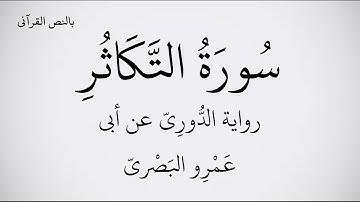 بالنص القرآنى
سُورَةُ التَّكَاثُرِ
رواية الدُّورِىّ عن أبى
عَمْرِو البَصْرِىّ